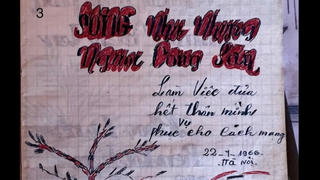 3
SỐNG NHƯ NHỮNG
NGƯỜI CỘNG SẢN
Làm Việc đưa
hết thân mình
vụ
phục cho Cách mạng
22-7-1966.
Hà Nội.